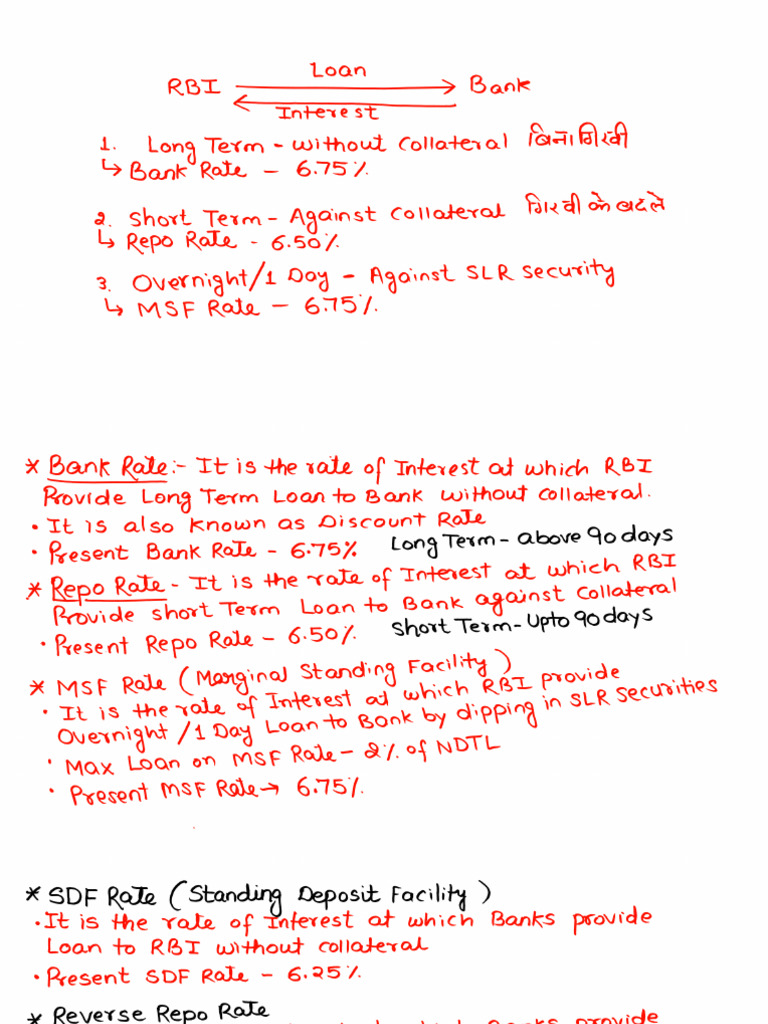 Loan
RBI Bank
Interest
1. Long Term - without collateral बिना गिरवी
↳ Bank Rate - 6.75%
2. Short Term - Against collateral गिरवी के बदले
↳ Repo Rate - 6.50%
3. Overnight/1 Day - Against SLR security
↳ MSF Rate - 6.75%
* Bank Rate:- It is the rate of Interest at which RBI
Provide Long Term Loan to Bank without collateral.
• It is also known as Discount Rate
• Present Bank Rate - 6.75% Long Term - above 90 days
* Repo Rate - It is the rate of Interest at which RBI
Provide short Term Loan to Bank against collateral
• Present Repo Rate - 6.50% Short Term - Upto 90 days
* MSF Rate (Marginal Standing Facility)
• It is the rate of Interest at which RBI provide
Overnight/1 Day Loan to Bank by dipping in SLR Securities
• Max Loan on MSF Rate - 2% of NDTL
• Present MSF Rate → 6.75%
* SDF Rate (Standing Deposit Facility)
• It is the rate of Interest at which Banks provide
Loan to RBI without collateral
• Present SDF Rate - 6.25%
* Reverse Repo Rate
which Banks provide